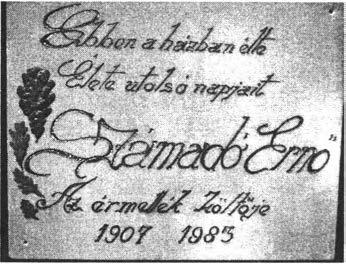 Ebben a házban élte
Élete utolsó napjait
Számadó Ernő
Az érmellék költője
1907 1983